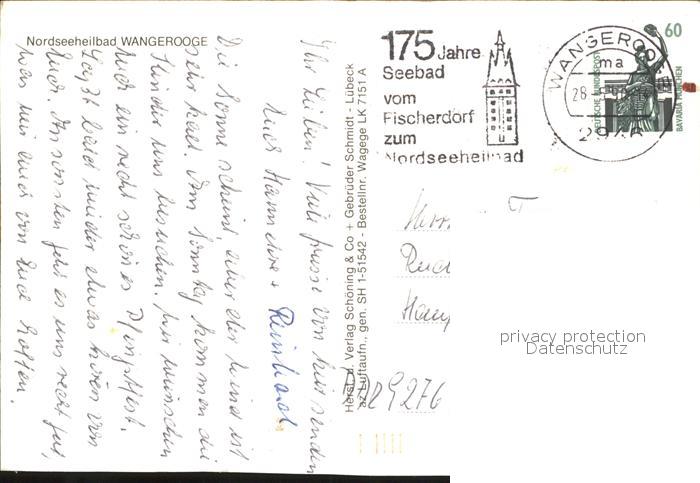 Nordseeheilbad WANGEROOGE
Ihr Lieben! Viele Grüsse von hier senden
Euch Hannelore + Reinhard.
Die Sonne scheint, aber der Wind ist
sehr kalt. Am Sonntag kommen die
Kinder uns besuchen. Wir wünschen
Euch ein recht schönes Pfingstfest.
Laßt bald wieder etwas hören von
Euch. Ansonsten geht es uns recht gut,
was wir auch von Euch hoffen.
Herst. u. Verlag Schöning & Co + Gebrüder Schmidt - Lübeck
az Luftaufn., gen. SH 1-51542 - Bestellnr. Wagege LK 7151 A
175 Jahre
Seebad
vom
Fischerdorf
zum
Nordseeheilbad
WANGEROOGE
ma
28
DEUTSCHE BUNDESPOST
60
BAVARIA MÜNCHEN
Herrn
T
DDR 9276
privacy protection
Datenschutz